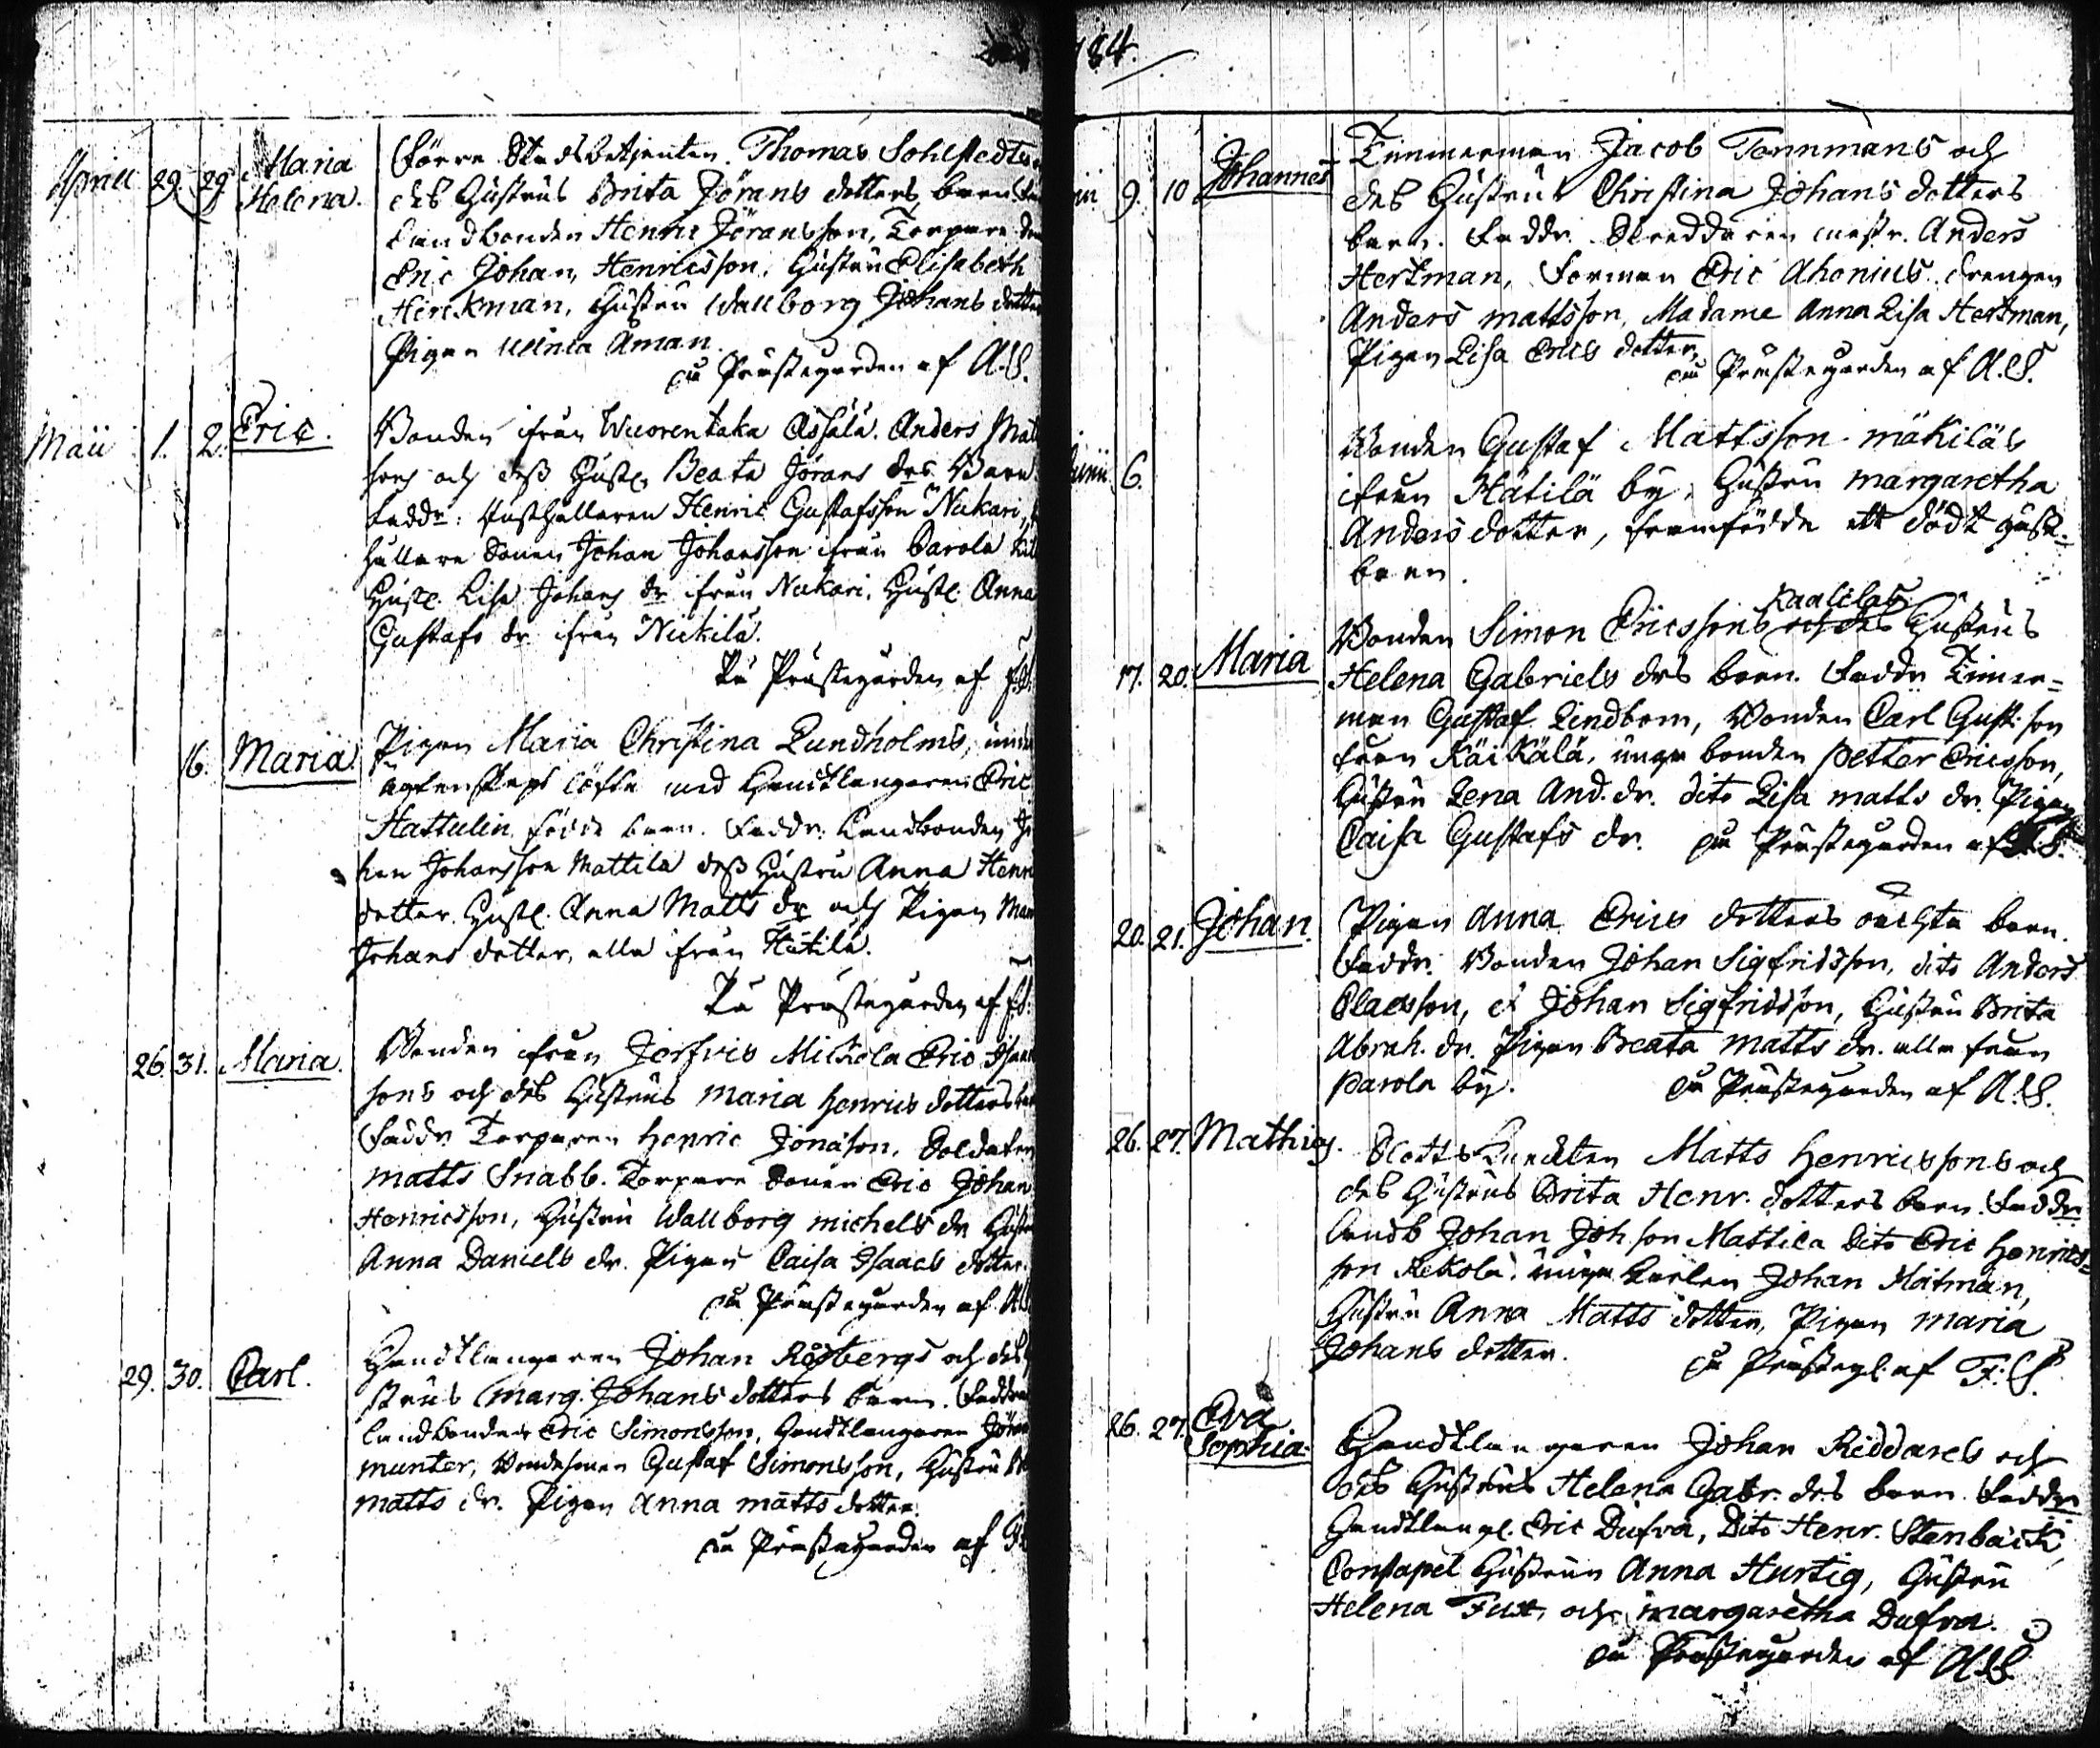 184.
Aprill 29. 29 Maria Helena.
Förre Stadsbetjenten. Thomas Sohlstedts
des Hustrus Brita Jörans dotters, barn
Landbonden Henric Jöransson, Torpare
Eric Johan, Henricsson, Hustru Elisabeth
Hirckman, Hustru Wallborg Johans dotter
Pigan Ulrica Åman.
på Prästegården af A.S.
Maii 1. 2. Eric.
Bonden ifrån Wuorentaka Assala. Anders Mat
sons och dess Hust. Beata Jörans drs Barn
Faddr: Rusthållaren Henric Gustafsson Nukari,
hållare Sonen Johan Johansson ifrån Parola
Hust. Lisa Johans dr ifrån Nukari, Hust. Anna
Gustafs dr ifrån Nickilä.
På Prästegården af
16. Maria
Pigan Maria Christina Lundholms, under
ägtenskaps löfte med Handtlangaren Eric
Hattulin födde barn. Faddr: Landbonden Jo
han Johansson Mattila dess Hustru Anna Henr
dotter. Hust. Anna Matts dr och Pigan
Johans dotter, alla ifrån Hätilä.
På Prästegården af
26. 31. Maria.
Bonden ifrån Jerfvis Mickola Eric Isaac
sons och des Hustrus Maria Henrics dotters
Faddr Torparen Henric Jonason, Soldaten
Matts Snabb. Torpare Sonen Eric Johan
Henricsson, Hustru Wallborg Michels dr
Anna Daniels dr. Pigan Caisa Isaacs dotter.
på Prästegården af
29. 30. Carl.
Handtlangaren Johan Rosbergs och des
strus Marg. Johans dotters barn. Faddr
landbonden Eric Simonsson, Handtlangaren
munter, Bondesonen Gustaf Simonsson, Hustru
matts dr. Pigan Anna matts dotter.
på Prästegården af
9. 10 Johannes
Timmerman Jacob Tammans och
des Hustrus Christina Johans dotters
barn. Faddr. Skreddaren mestr. Anders
Hertman, Forman Eric Ahonius drengen
Anders mattsson, Madame Anna Lisa Hertman,
Pigan Lisa Erics dotter,
på Prästegården af A.S.
Junii. 6.
Bonden Gustaf Mattsson mäkiläs
ifrån Hätilä by, Hustru margaretha
Anders dotter, framfödde ett dödt
barn.
17. 20. Maria
Kaalilas
Bonden Simon Ericssons och des Hustrus
Helena Gabriels drs barn. Faddr Timer=
man Gustaf Lindbom, Bonden Carl Gust. son
från Käikälä, unga bonden Petter Ericsson,
Hustru Lena And. dr. dito Lisa matts dr. Pigan
Caisa Gustafs dr. på Prästegården af
20. 21. Johan.
Pigan Anna Erics dotters oächta barn.
Faddr. Bonden Johan Sigfridsson, dito Anders
Claesson, Johan Sigfridsson, Hustru Brita
Abrah. dr. Pigan Beata matts dr. alla från
Parola by. på Prästegården af A.S.
26. 27. Mathias.
Slotts Matts Henricssons och
des Hustrus Brita Henr. dotters barn. Faddr
Landb Johan Joh son Mattila Dito Eric Henrics=
son Rekola. unga Karlen Johan Hoitman,
Hustru Anna Matts dotter, Pigan maria
Johans dotter. på Prästeg. af F: S.
26. 27. Eva Sophia.
Handtlangaren Johan Riddares och
des Hustrus Helena Gabr. drs barn. Faddr
Handtlang. Eric Dufva, Dito Henr. Stenbäck,
Constapel Hustrun Anna Hurtig, Hustru
Helena och margaretha Dufva.
på Prästegården af A.S.